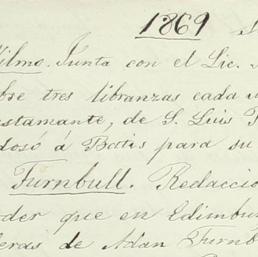 1869
Wilmo. Junta con el Lic.
tres libranzas cada
de S. Luis
á Batis para su
Turnbull. Redacció
que en Edimbur
de Adan Turnb